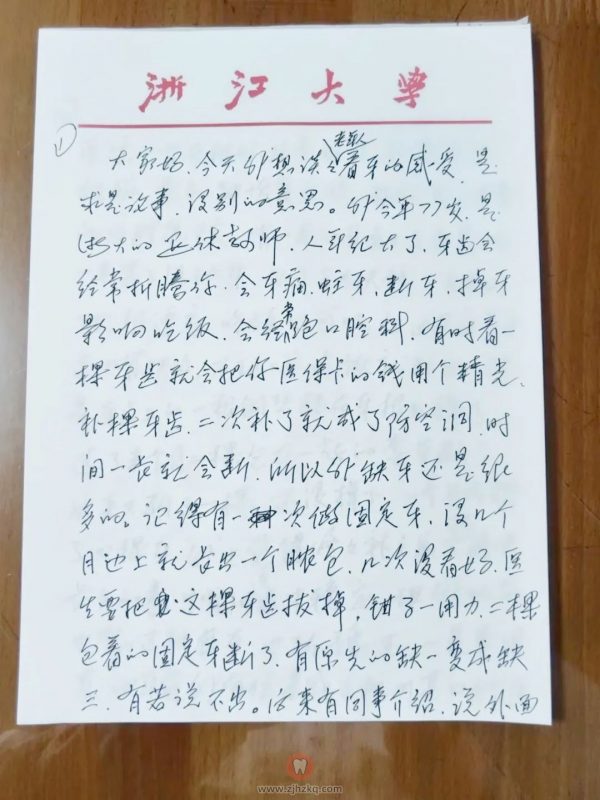 浙江大学
①
老年人
大家好、今天我想谈谈看牙的感受，是
求是说事，没别的意思。我今年77岁，是
浙大的退休教师，人年纪大了，牙齿会
经常折腾你，会牙痛、蛀牙、断牙、掉牙
影响吃饭，会经常跑口腔科，有时看一
棵牙齿就会把你医保卡的钱用个精光、
补棵牙齿、二次补了就成了防空洞，时
间一长就会断，所以我缺牙还是很
多的。记得有一次做固定牙，没几个
月边上就长出一个脓包，几次没看好，医
生要把这棵牙齿拔掉，钳子一用力，二棵
包着的固定牙断了，有原先的缺一变成缺
三，有苦说不出。后来有同事介绍，说外面
www.zjhzkq.com